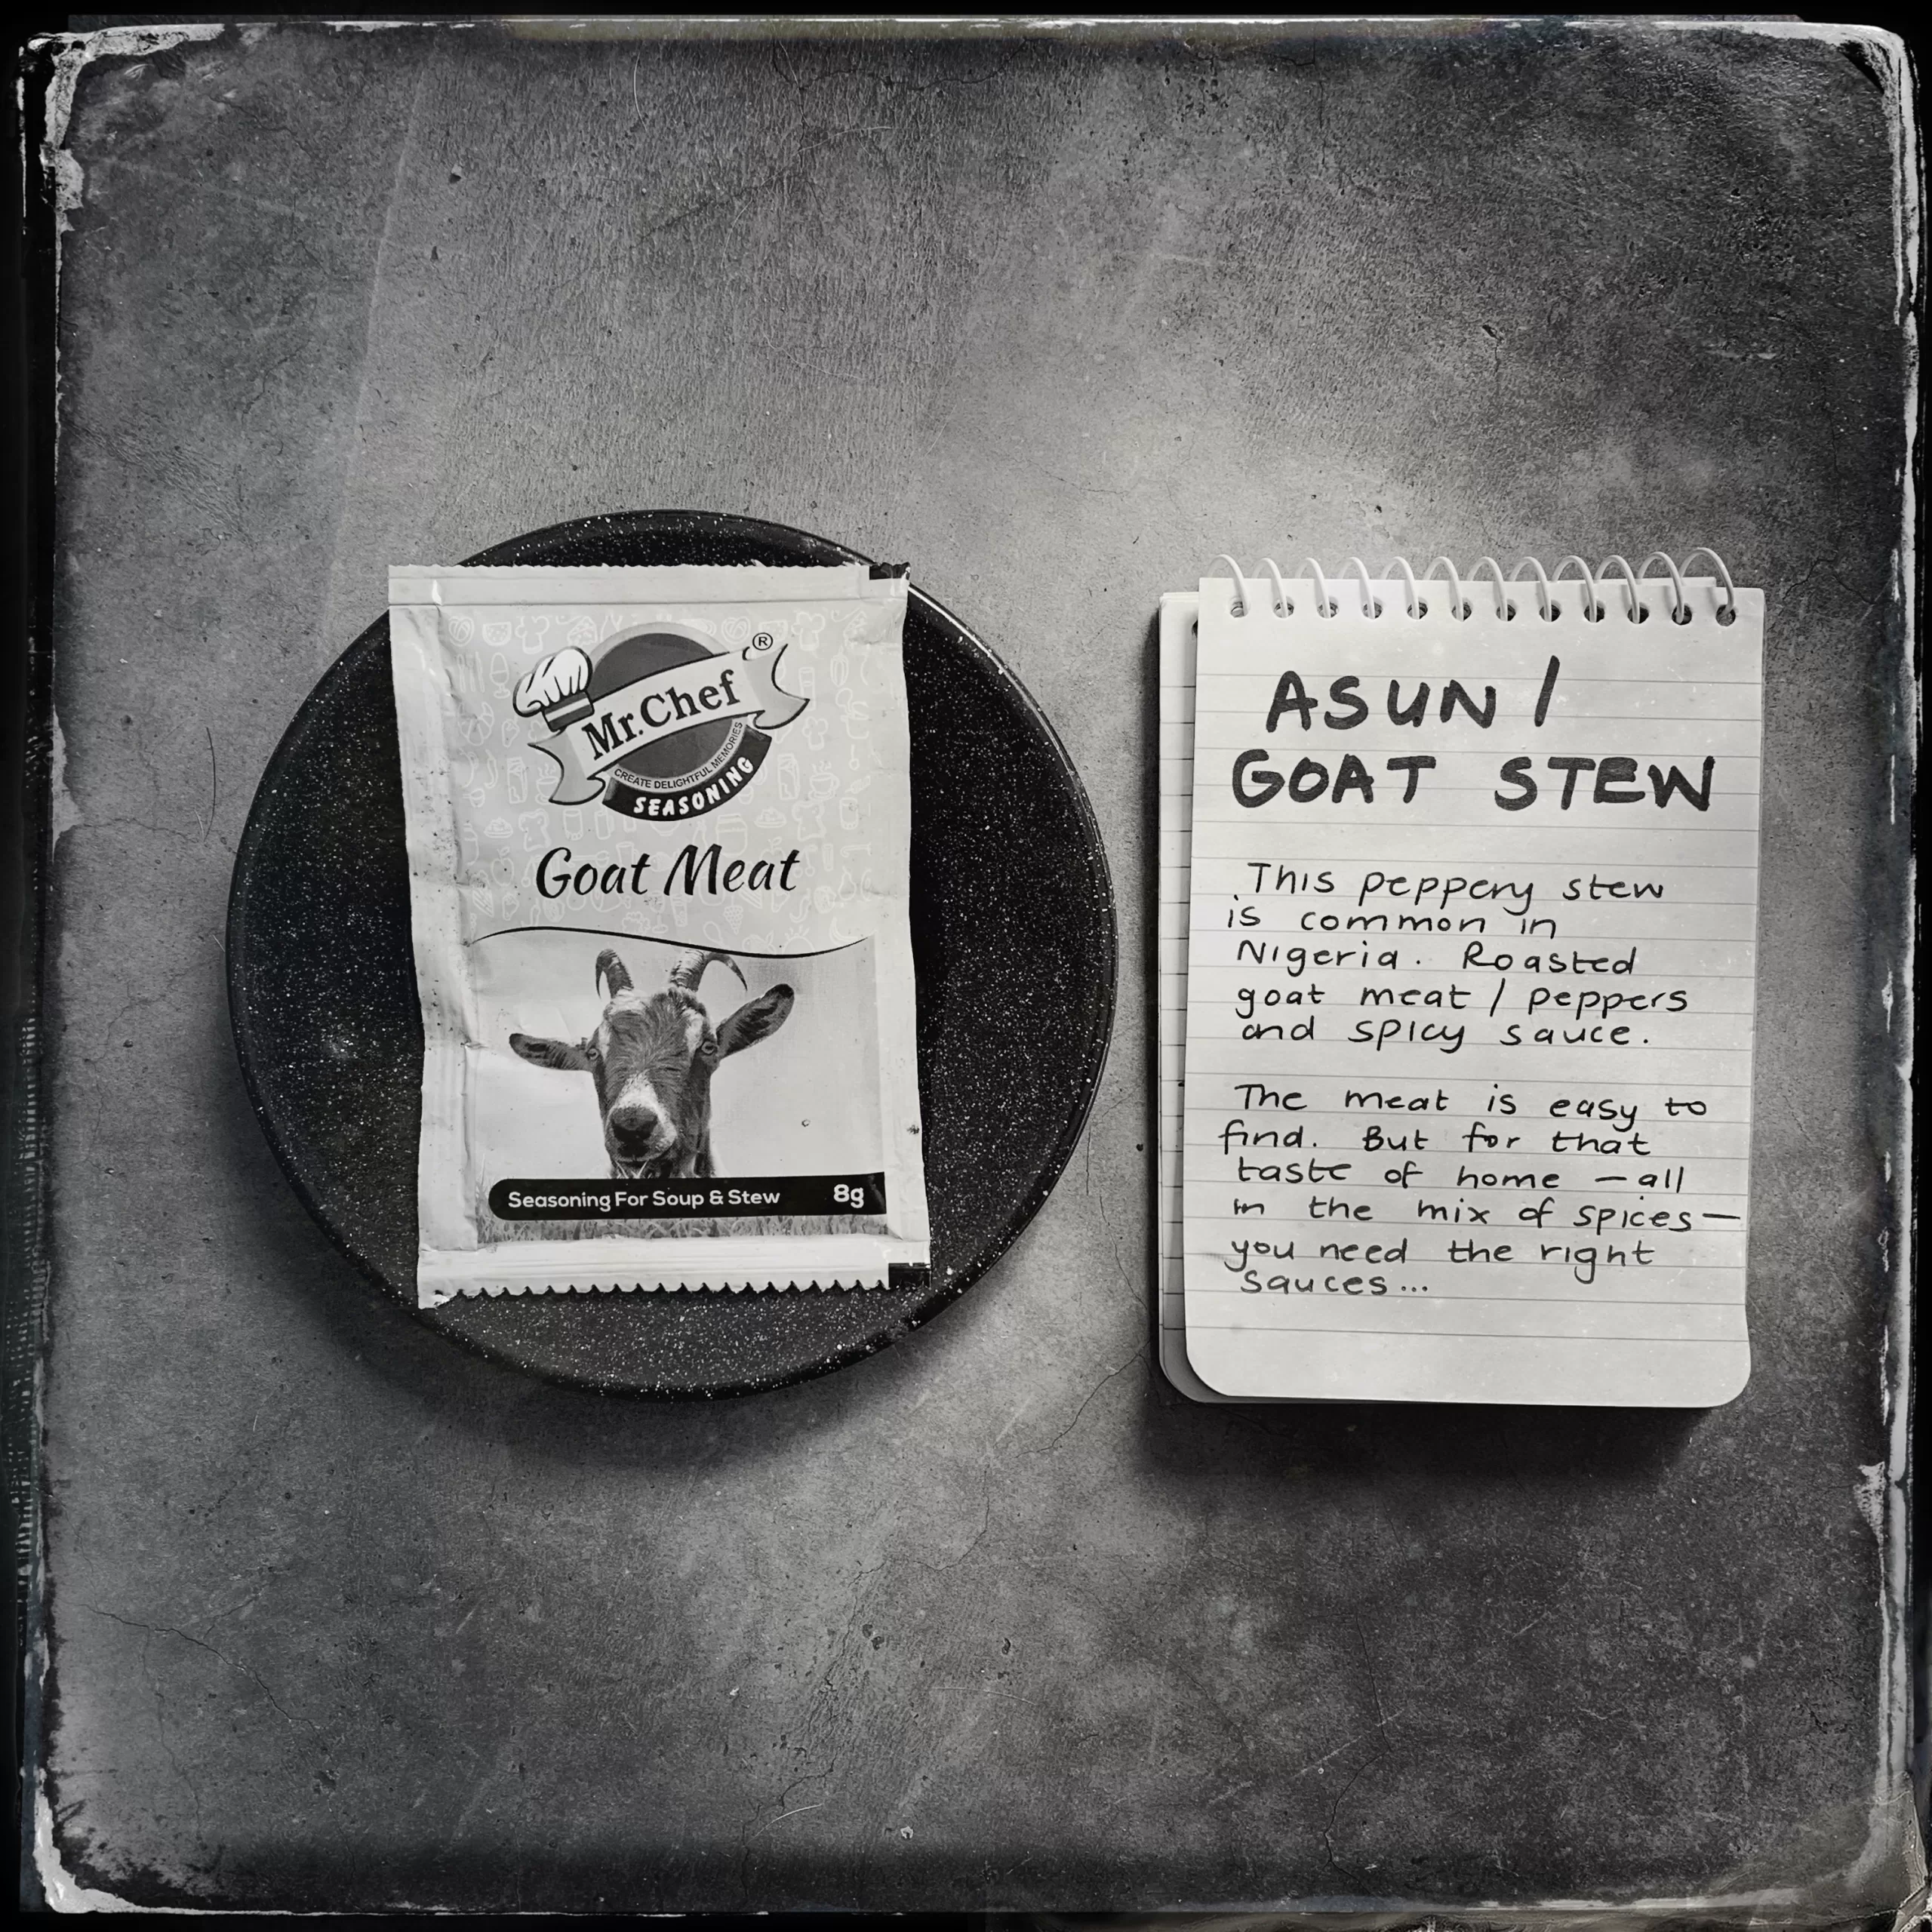 Mr. Chef ®
CREATE DELIGHTFUL MEMORIES
SEASONING
Goat Meat
Seasoning For Soup & Stew 8g
ASUN /
GOAT STEW
This peppery stew
is common in
Nigeria. Roasted
goat meat / peppers
and spicy sauce.
The meat is easy to
find. But for that
taste of home — all
in the mix of spices —
you need the right
sauces...